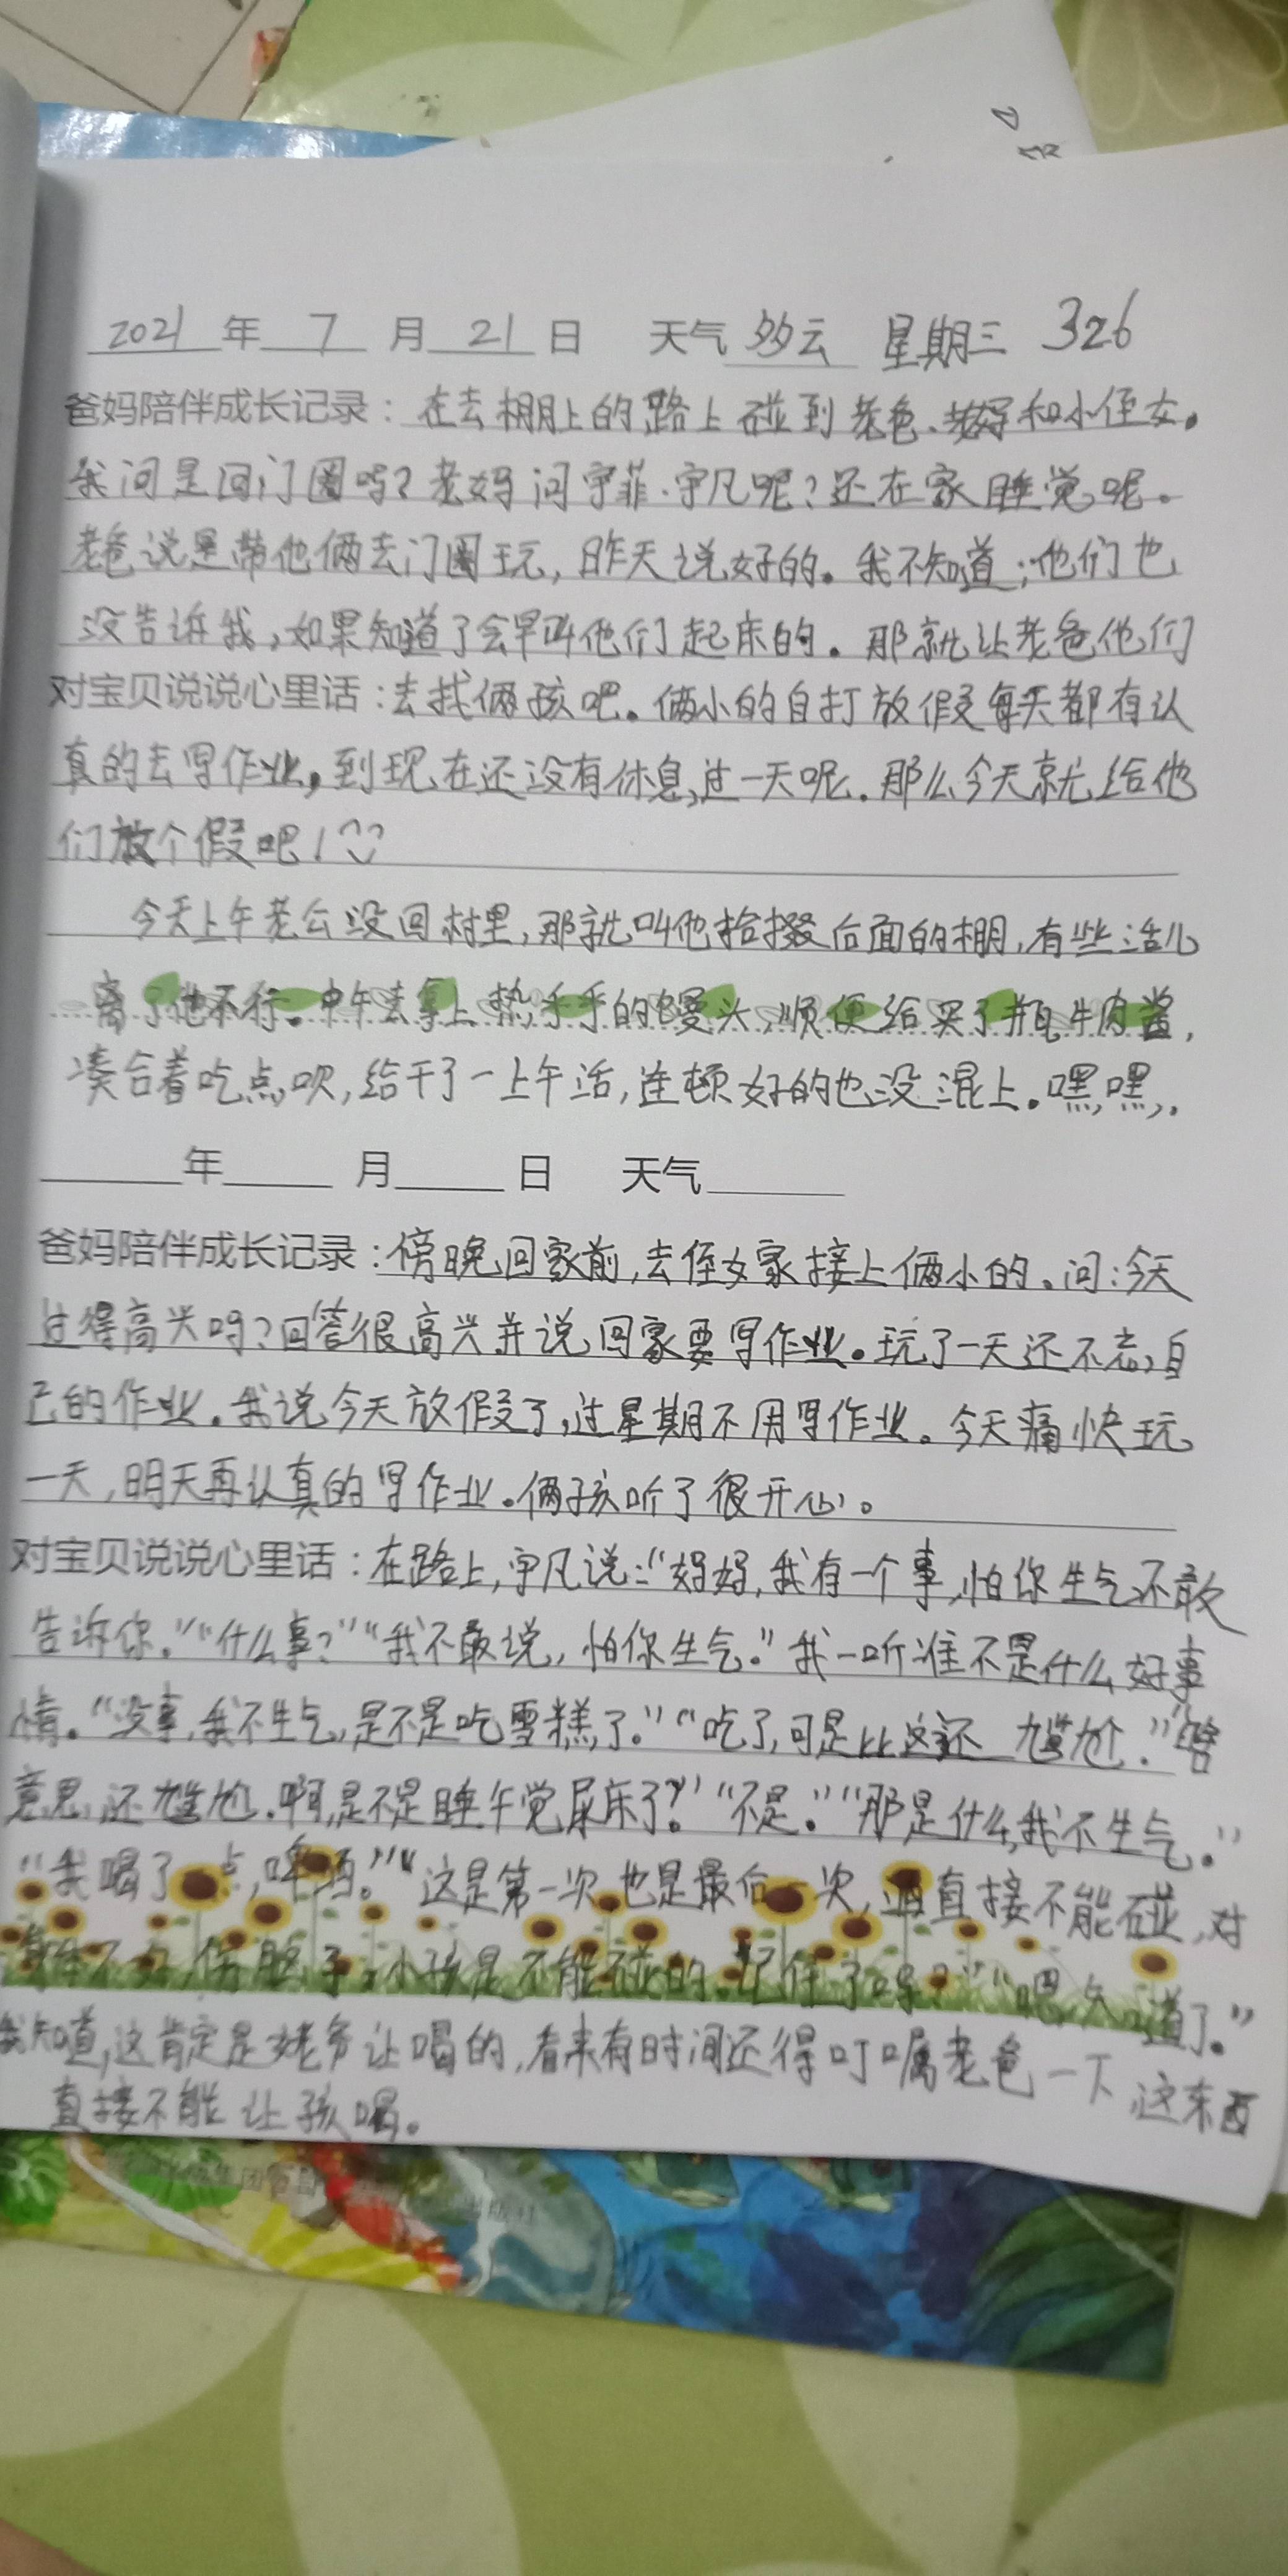 2021年7月21日 天气多云 星期三 326
爸妈陪伴成长记录：在去棚上的路上碰到老爸、老妈和小侄女。
我问是回门圈吗？老妈问宇菲、宇凡呢？还在家睡觉呢。
老爸说是带他俩去门圈玩，昨天说好的。我不知道；他们也
没告诉我，如果知道了会早叫他们起床的。那就让老爸他们
对宝贝说说心里话：去找俩孩吧。俩小的自打放假每天都有认
真的去写作业，到现在还没有休息过一天呢。那么今天就给他
们放个假吧！
今天上午老公没回村里，那就叫他拾掇后面的棚，有些活儿
离了他不行。中午去拿上热乎乎的馒头，顺便给买了瓶牛肉酱，
凑合着吃点呗，给干了一上午活，连顿好的也没混上。嘿嘿，.
年 月 日 天气
爸妈陪伴成长记录：傍晚回家前，去侄女家接上俩小的。问：今天
过得高兴吗？回答很高兴并说回家要写作业。玩了一天还不忘自
己的作业。我说今天放假了，过星期不用写作业。今天痛快玩
一天，明天再认真的写作业。俩孩听了很开心。
对宝贝说说心里话：在路上，宇凡说：“妈妈，我有一个事，怕你生气不敢
告诉你。”“什么事？”“我不敢说，怕你生气。”我一听准不是什么好事
情。“没事，我不生气，是不是吃雪糕了。”“吃了，可是比这还尴尬。”“啥
意思，还尴尬。啊，是不是睡午觉尿床了？”“不是。”“那是什么，我不生气。”
“我喝了一点，啤酒。”“这是第一次也是最后一次，酒直接不能碰，对
身体不好，伤脑子，小孩是不能碰的。记住了吗？”“嗯，知道了。”
我知道，这肯定是老爷让喝的，看来有时间还得叮嘱老爸一下 这东西
直接不能让孩喝。